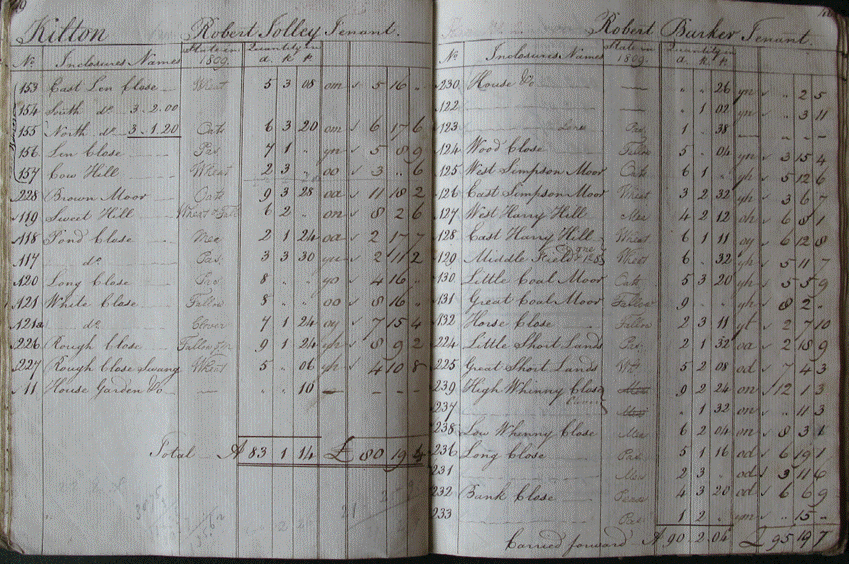 Kilton Robert Jolley Tenant.
No. Inclosures Names State in 1809. Quantity in a. r. p.
153 East Len Close Wheat 5 3 08 om 5 16 "
154 South do. 3.2.00
155 North do. 3.1.20 Oats 6 3 20 om 6 17 6
156 Len Close Pas. 7 1 " yn 5 8 9
157 Cow Hill Wheat 2 3 " oo 3 " 6
228 Brown Moor Oats 9 3 28 oa 11 18 2
119 Sweet Hill Wheat 6 2 " on 8 2 6
118 Pond Close Mea. 2 1 24 oa 2 17 7
117 do. Pas. 3 3 30 2 11 2
120 Long Close Pas. 8 " " yo 4 16 "
121 White Close Fallow 8 " " oo 8 16 "
121a do. Clover 7 1 24 oy 7 15 4
226 Rough Close Fallow 9 1 24 yh 8 9 2
227 Rough Close Swang Wheat 5 " 06 yh 4 10 8
11 House Garden &c. — " " 16 — - - -
Total A 83 1 14 £ 80 19 4
Robert Barker Tenant.
No. Inclosures Names State in 1809. Quantity in a. r. p.
230 House &c. — " " 26 yn " 2 5
122 — " 1 02 yn " 3 11
123 Lane Pas. " 1 38 — - - -
124 Wood Close Fallow 5 " 04 yh 3 15 4
125 West Simpson Moor Oats 6 1 " yh 5 12 6
126 East Simpson Moor Wheat 3 2 32 yh 3 6 7
127 West Harry Hill Mea. 4 2 12 oh 6 8 1
128 East Harry Hill Wheat 6 1 11 oy 6 12 8
129 Middle Field Wheat 6 " 32 yh 5 11 7
130 Little Coal Moor Oats 5 3 20 yh 5 5 9
131 Great Coal Moor Fallow 9 " " yh 8 2 "
132 Horse Close Fallow 2 3 11 yh 2 7 10
224 Little Short Lands Pas. 2 1 32 oa 2 18 9
225 Great Short Lands Wht. 5 2 08 od 7 4 3
239 High Whinny Close 9 2 24 on 12 1 3
237 " 1 32 on " 11 3
238 Low Whinny Close Mea. 6 2 04 on 8 3 1
236 Long Close Pas. 5 1 16 od 6 19 1
231 Mea. 2 3 " od 3 11 6
232 Bank Close 4 3 20 od 6 6 9
233 Pas. 1 2 " ym " 15 "
Carried forward A 90 2 04 £ 95 19 7